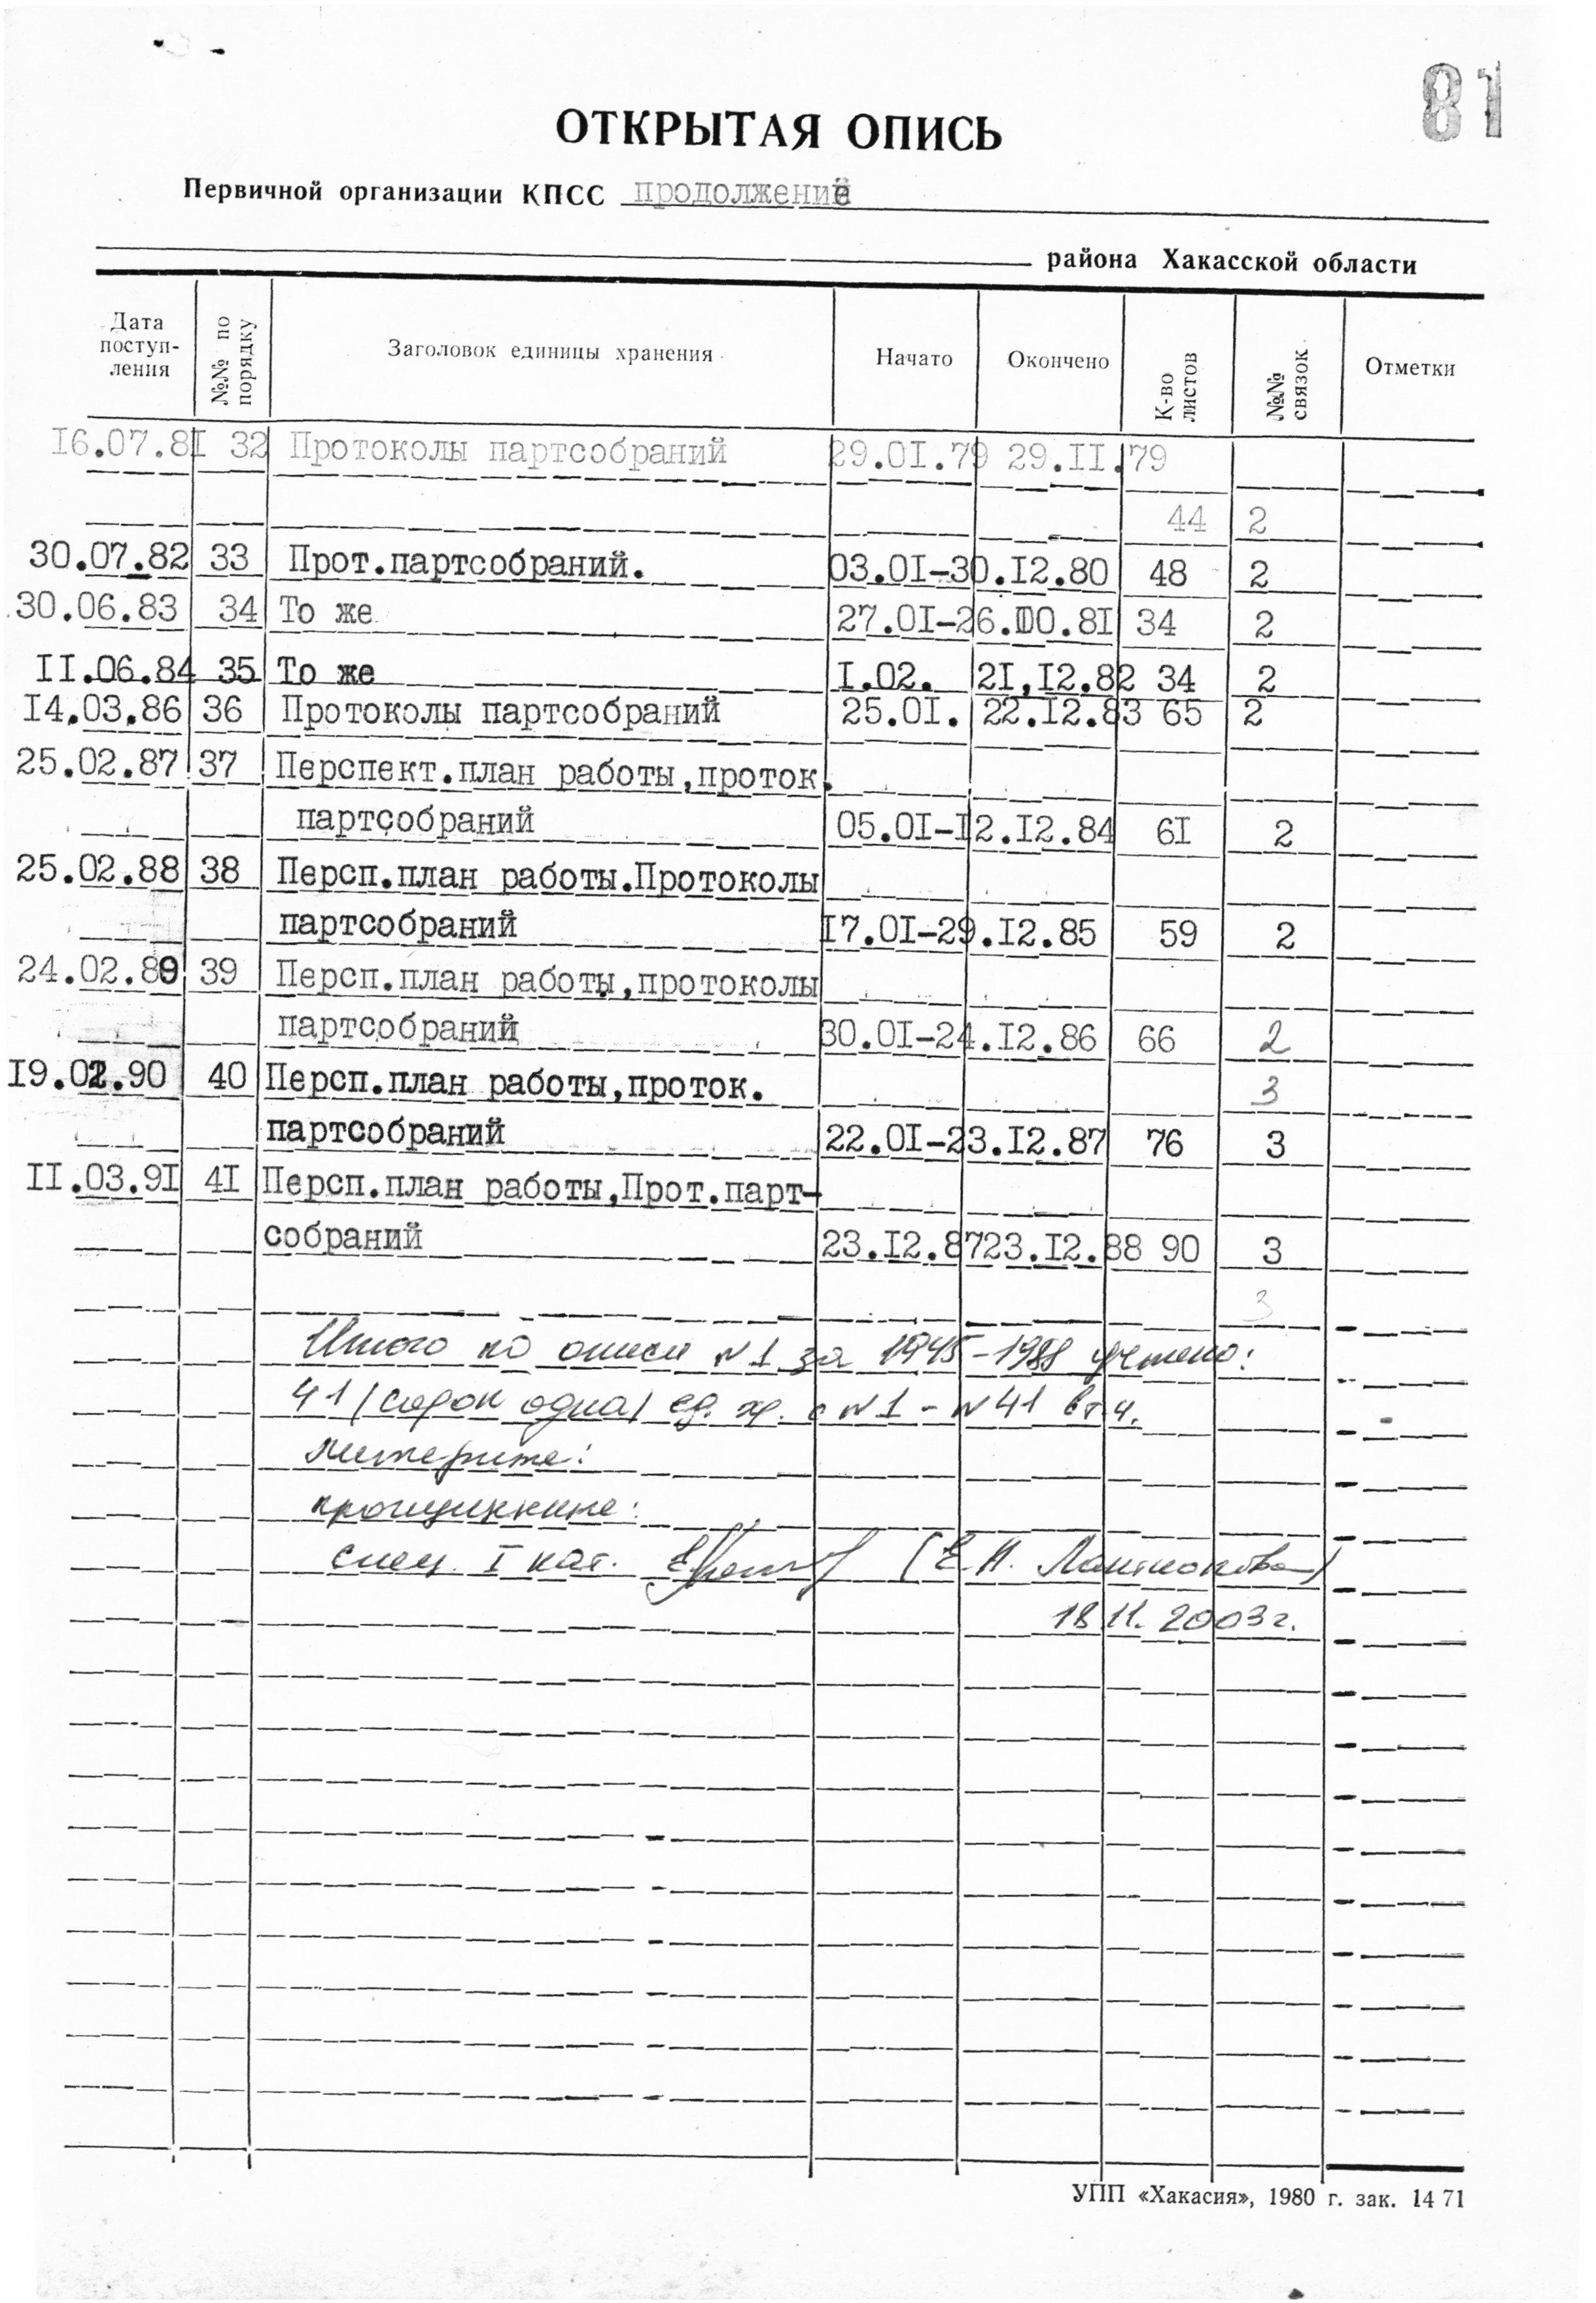 81
ОТКРЫТАЯ ОПИСЬ
Первичной организации КПСС продолжение
района Хакасской области
Дата поступ-ления №№ по порядку Заголовок единицы хранения Начато Окончено К-во листов №№ связок Отметки
16.07.81 32 Протоколы партсобраний 29.01.79 29.11.79
44 2
30.07.82 33 Прот.партсобраний. 03.01-30.12.80 48 2
30.06.83 34 То же 27.01-26.10.81 34 2
11.06.84 35 То же 1.02. 21,12.82 34 2
14.03.86 36 Протоколы партсобраний 25.01. 22.12.83 65 2
25.02.87 37 Перспект.план работы,проток.
партсобраний 05.01-12.12.84 61 2
25.02.88 38 Персп.план работы.Протоколы
партсобраний 17.01-29.12.85 59 2
24.02.89 39 Персп.план работы,протоколы
партсобраний 30.01-24.12.86 66 2
19.02.90 40 Персп.план работы,проток. 3
партсобраний 22.01-23.12.87 76 3
11.03.91 41 Персп.план работы,Прот.парт-
собраний 23.12.8723.12.88 90 3
3
Итого по описи №1 за 1945-1988 учтено:
41 (сорок одна) ед. хр. с №1 - №41 в т.ч.
литерные:
пропущенные:
спец. I кат. (Е.Н.
18.11.2003г.
УПП «Хакасия», 1980 г. зак. 1471